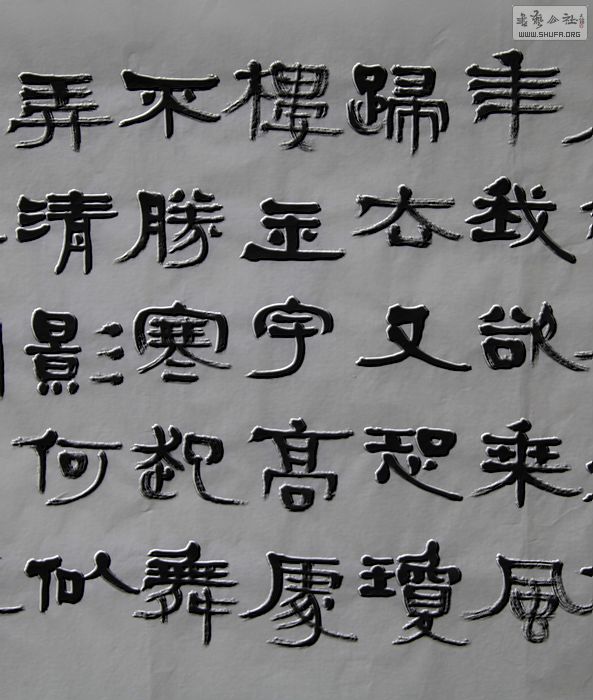 年我欲乘風
歸去又恐瓊
樓玉宇高處
不勝寒起舞
弄清影何似
書藝公社
WWW.SHUFA.ORG